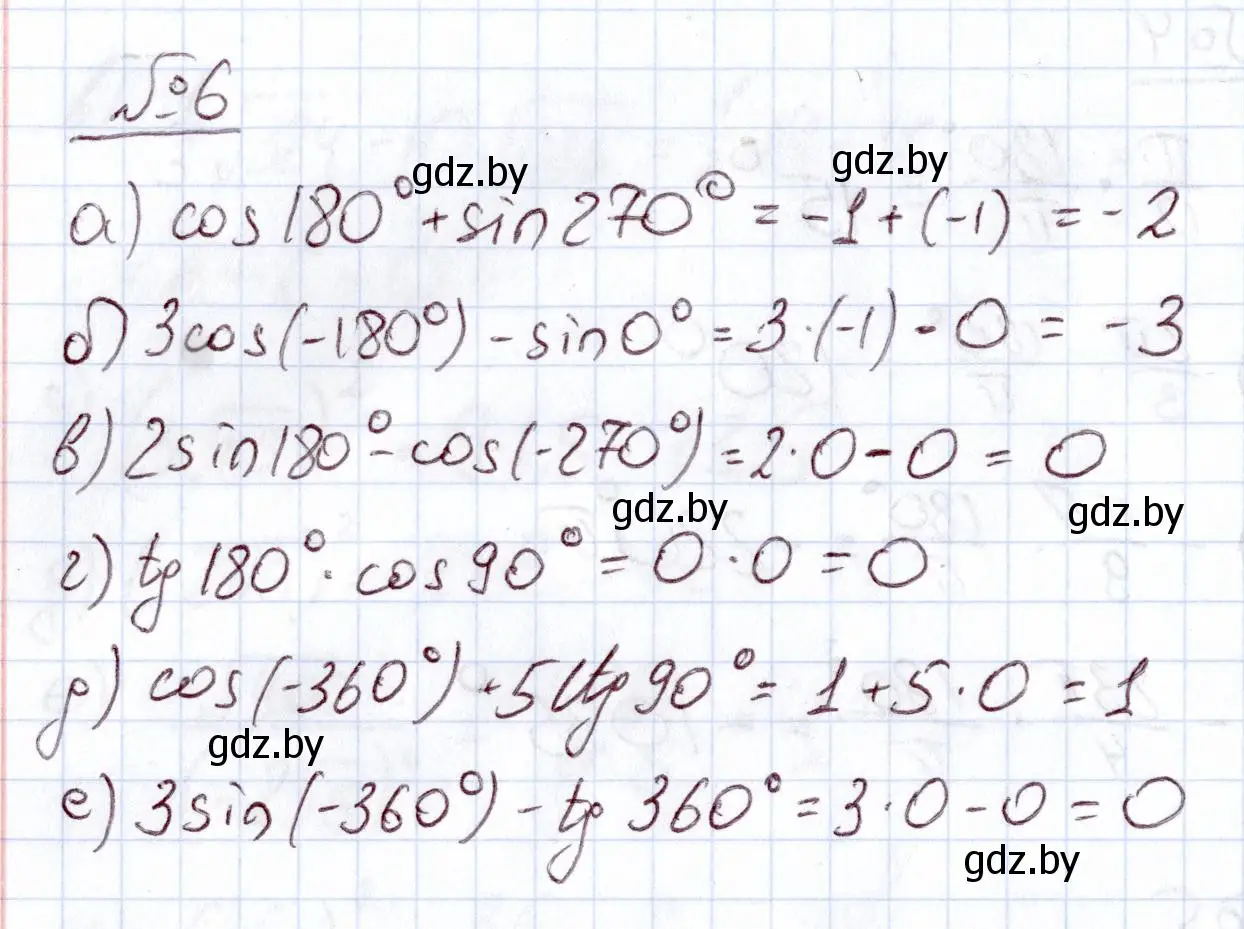 №6
gdz.by gdz.by
а) cos180° + sin270° = -1 + (-1) = -2
б) 3cos(-180°) - sin0° = 3·(-1) - 0 = -3
в) 2sin180° - cos(-270°) = 2·0 - 0 = 0
gdz.by gdz.by
г) tg180° · cos90° = 0·0 = 0
д) cos(-360°) + 5ctg90° = 1 + 5·0 = 1
gdz.by
е) 3sin(-360°) - tg360° = 3·0 - 0 = 0
gdz.by